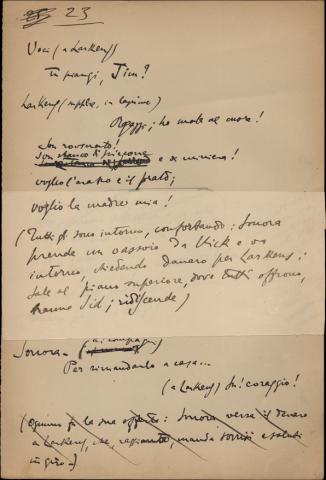 23
Voci (a Larkens)
tu piangi, Jim?
Larkens (supplice, in lagrime)
Ragazzi, ho male al cuore!
Son rovinato!
Son stanco di piccone
e di miniera!
voglio l'aratro e il prato;
voglio la madre mia!
(Tutti gli sono intorno, confortando: Sonora
prende un vassoio da Nick e va
intorno, chiedendo danaro per Larkens;
sale al piano superiore, dove tutti offrono,
tranne Sid; ridiscende)
Sonora - (ai compagni)
Per rimandarlo a casa...
(a Larkens) Su! coraggio!
(Ognuno fa la sua offerta: Sonora versa il denaro
a Larkens, che, rassicurato, manda sorrisi e saluti
in giro -)